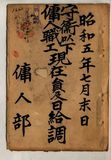 昭和五年七月末日
子備以下
傭職工現在員及日給調
傭人部